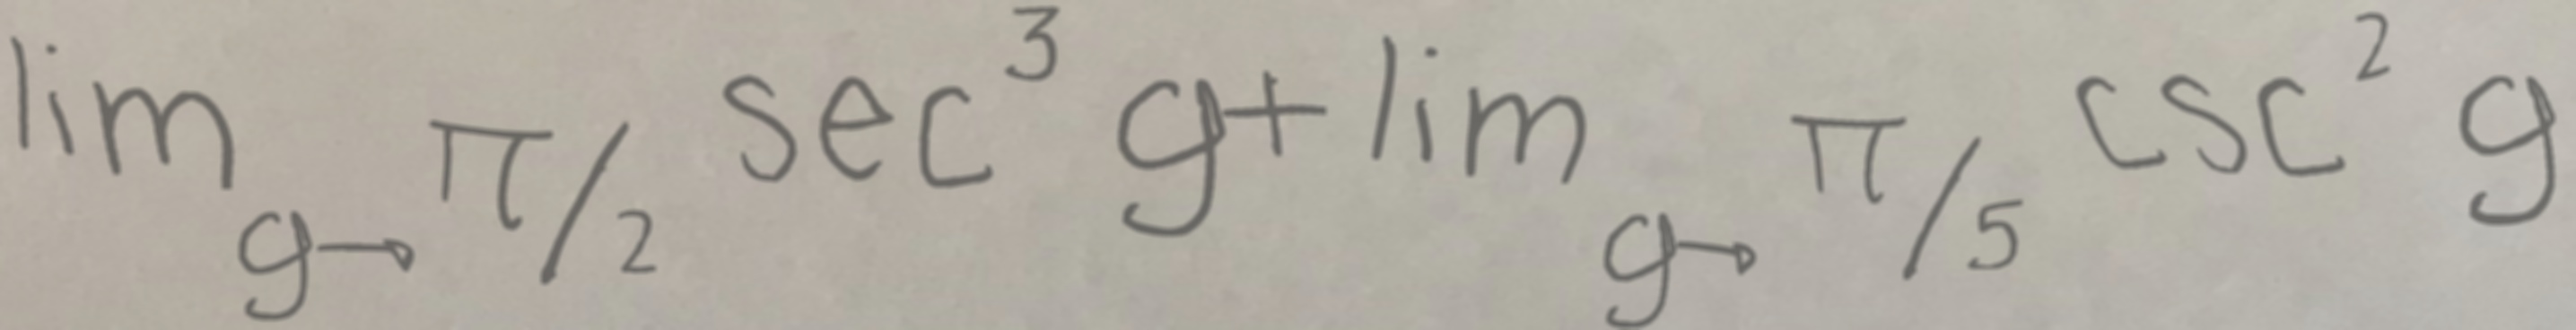 lim_{g→π/2} sec³ g + lim_{g→π/5} csc² g